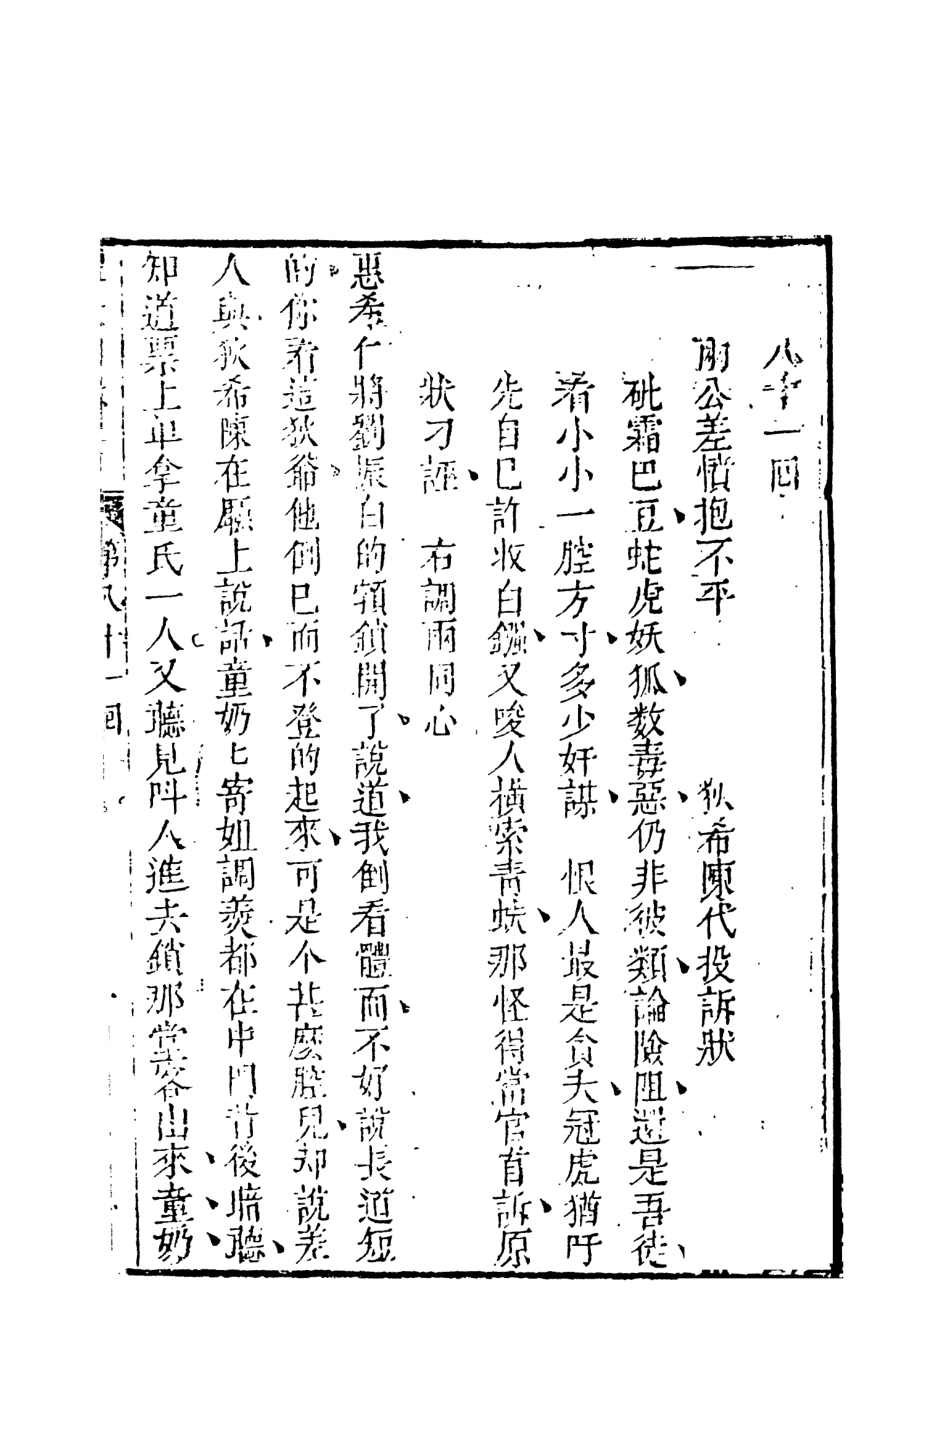 八十一回
兩公差憤抱不平　狄希陳代投訴狀
砒霜巴豆蛇虎妖狐数毒惡仍非彼類論險阻還是吾徒
看小小一腔方寸多少奸謀　恨人最是貪夫冠虎猶吁
先自已許收白鏹又唆人橫索青蚨那怪得當官首訴原
狀刁誣　右調兩同心
惠希仁將劉振白的領鎖開了說道我倒看體面不好說長道短
的你看這狄爺他倒巳而不登的起來可是个甚麼腔兒却說差
人與狄希陳在廳上說話童奶匕寄姐調羹都在中門背後暗聽
知道票上单拿童氏一人又聽見呌人進去鎖那當裏容出來童奶
第八十一回